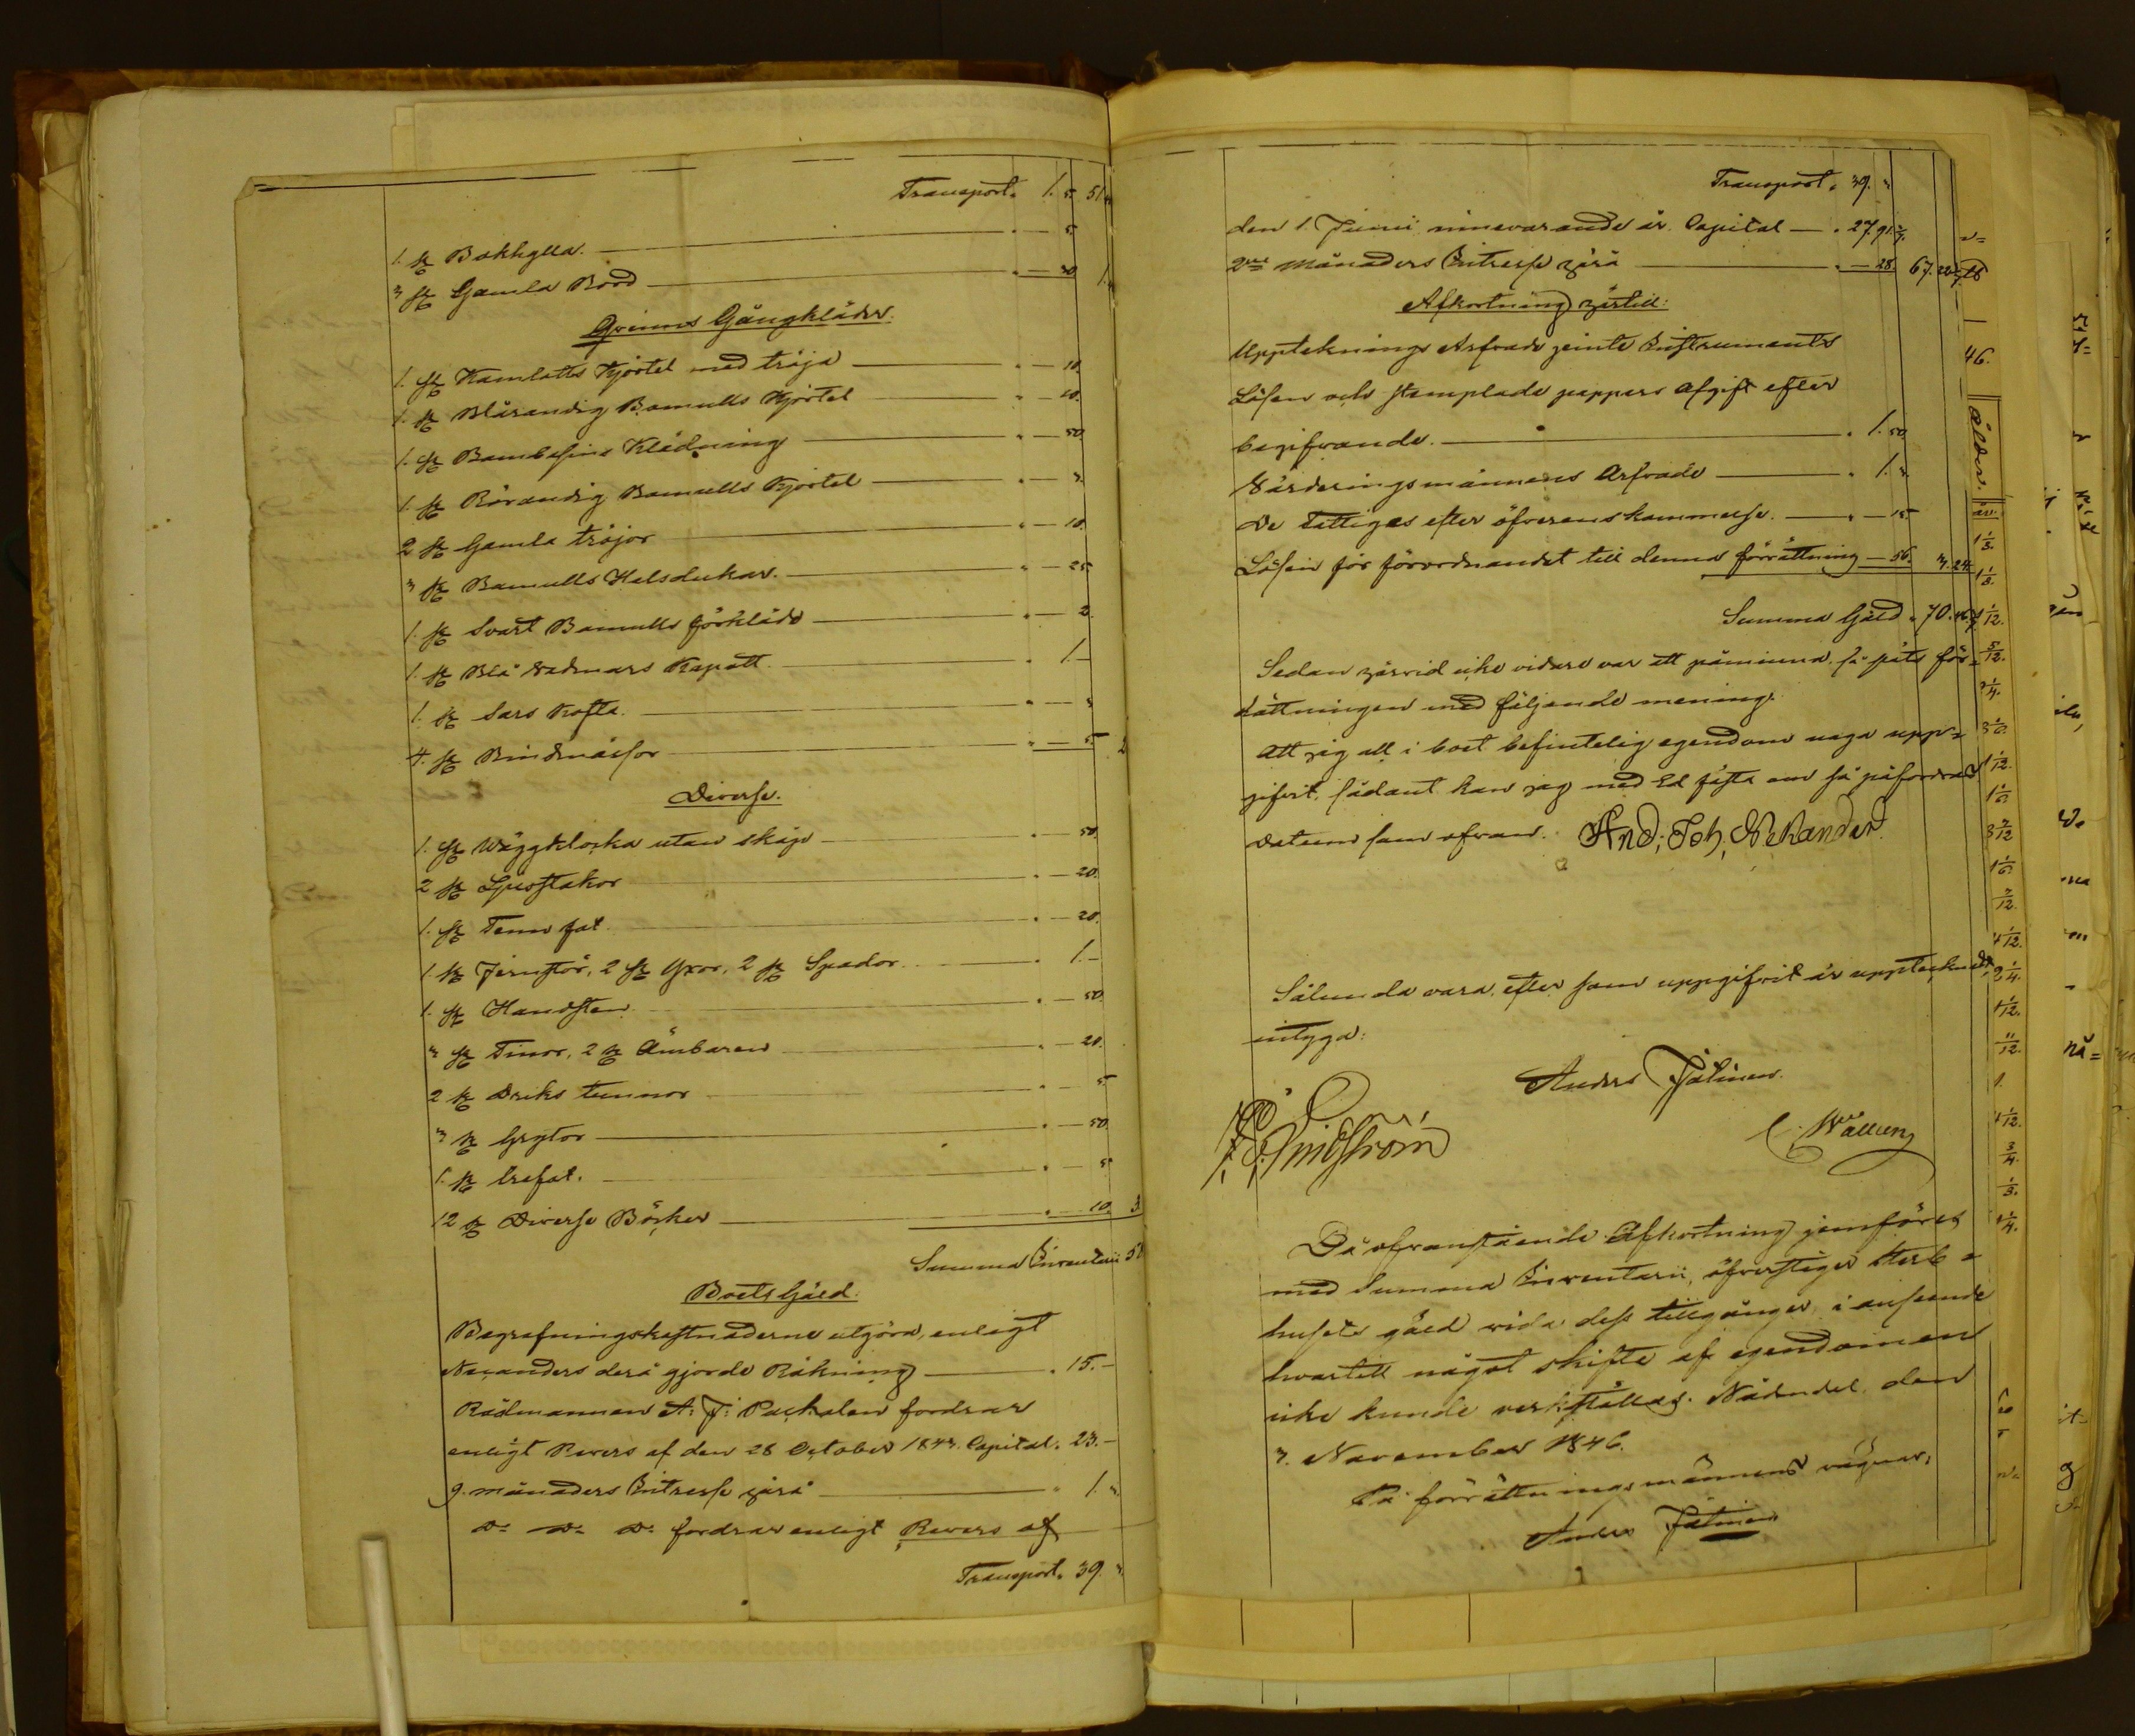 Transport. 1. 5. 51
1. st Bokhylla. — 5
3 st Gamla Bord — 30 1.
Qvinns Gångkläder.
1. st Kamlotts Kjortel med tröja — 10.
1. st Blårandig Bomulls Kjortel — 10.
1. st Bombasins Klädning — 50
1. st Rörandig Bomulls Kjortel — 3.
2 st Gamla tröjor — 10.
3 st Bomulls Halsdukar. — 25
1. st Svart Bomulls förkläde — 2.
1. st Blå Vadmars Kapott — 1. —
1. st Sars Kofta. — 3
4. st Bindmössor — 5 2
Diverse.
1. st Wäggklocka utan skåp — 50.
2 st Ljusstakar — 20.
1. st Tenn fat — 20.
1. st Jernstör, 2 st Yxor, 2 st Spador. — 1. —
1. st Handsten — 50.
3 st Tinor, 2 st Ämbaren — 20.
2 st Dricks tunnor — 5
3 st Grytor — 50.
1. st Trefat. — 5
12 st Diverse Böcker — 10. 3
Summa Inventarii 5
Boets Gäld.
Begrafningskostnaderne utgöra, enligt
Necanders derå gjorde Räkning — 15. —
Rådmannen A: J: Pachalen fordrar
enligt Revers af den 28 October 1843. Capital. 23. —
9. månaders Intresse härå — 1. 3.
D:o D:o D:o fordrar enligt Revers af
Transport. 39. 3.
Transport. 39. 3.
den 1. Junii innevarande år. Capital — 27. 91 3/7.
2:ne månaders Intresse härå — 28. 67. 22
Afkortning härtill:
Upptecknings Arfvode jemte Instruments
Lösen och stämplade pappers Afgift efter
begifvande. — 1. 50
Värderingsmännens Arfvode — 1. 3.
De Fattigas efter öfverenskommelse. — 15.
Lösen för förordnandet till denna förrättning — 56. 3. 24.
Summa Gäld. 70. 46
Sedan härvid icke vidare var att påminna, så slöts för=
rättningen med följande mening:
Att jag all i boet befintelig egendom noga upp=
gifvit, sådant kan jag med Ed fästa om så påfordras
Datum som ofvan. And; Joh, Nekander
Sålunda vara, efter som uppgifvit är upptecknadt,
intyga:
Anders Jálinen.
Lindström
C. Wallen
Då ofvanstående Afkortning jemföres
med Summa Inventarii, öfverstiger Sterb=
husets gäld vida dess tillgångar, i anseende
hvartill något skifte af egendomen
icke kunde verkställas. Nådendal, den
3. November 1846.
På förrättningsmännens vägnar,
Anders Jálinen
46.
Ålder.
år.